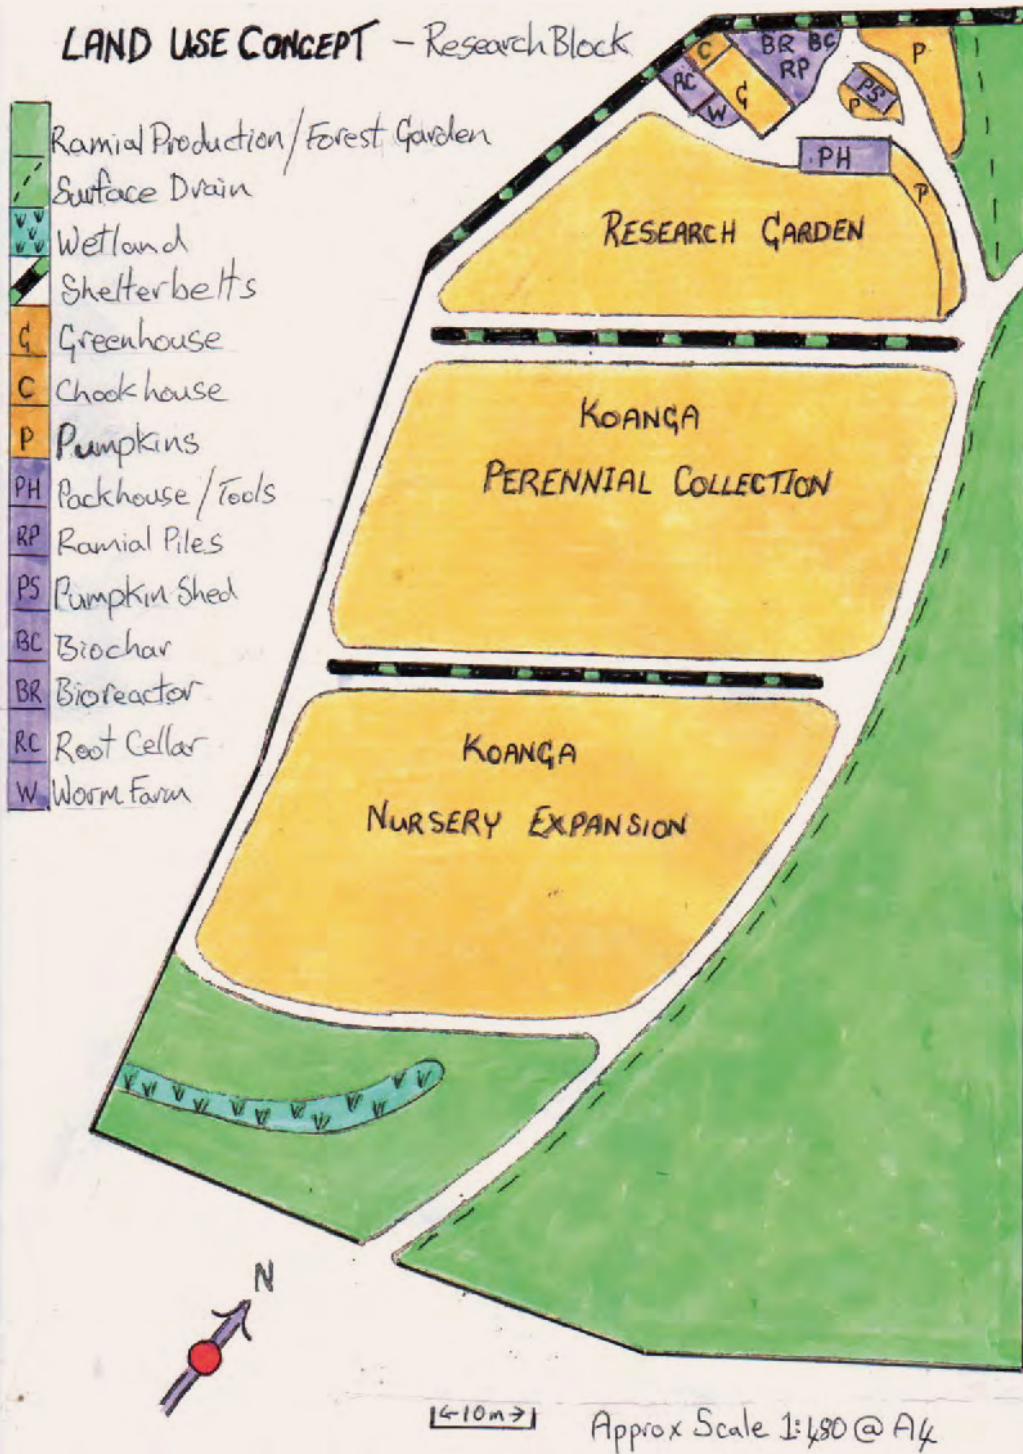 LAND USE CONCEPT - Research Block
Ramial Production/Forest Garden
Surface Drain
Wetland
Shelterbelts
G Greenhouse
C Chookhouse
P Pumpkins
PH Packhouse/Tools
RP Ramial Piles
PS Pumpkin Shed
BC Biochar
BR Bioreactor
RC Root Cellar
W Worm Farm
C
BR BC
RP
P
RC
G
W
PS
P
PH
P
RESEARCH GARDEN
KOANGA
PERENNIAL COLLECTION
KOANGA
NURSERY EXPANSION
N
←10m→
Approx Scale 1:480 @ A4